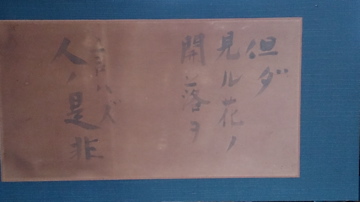 但ダ
見ル花ノ
開落ヲ
言ハズ
人ノ是非